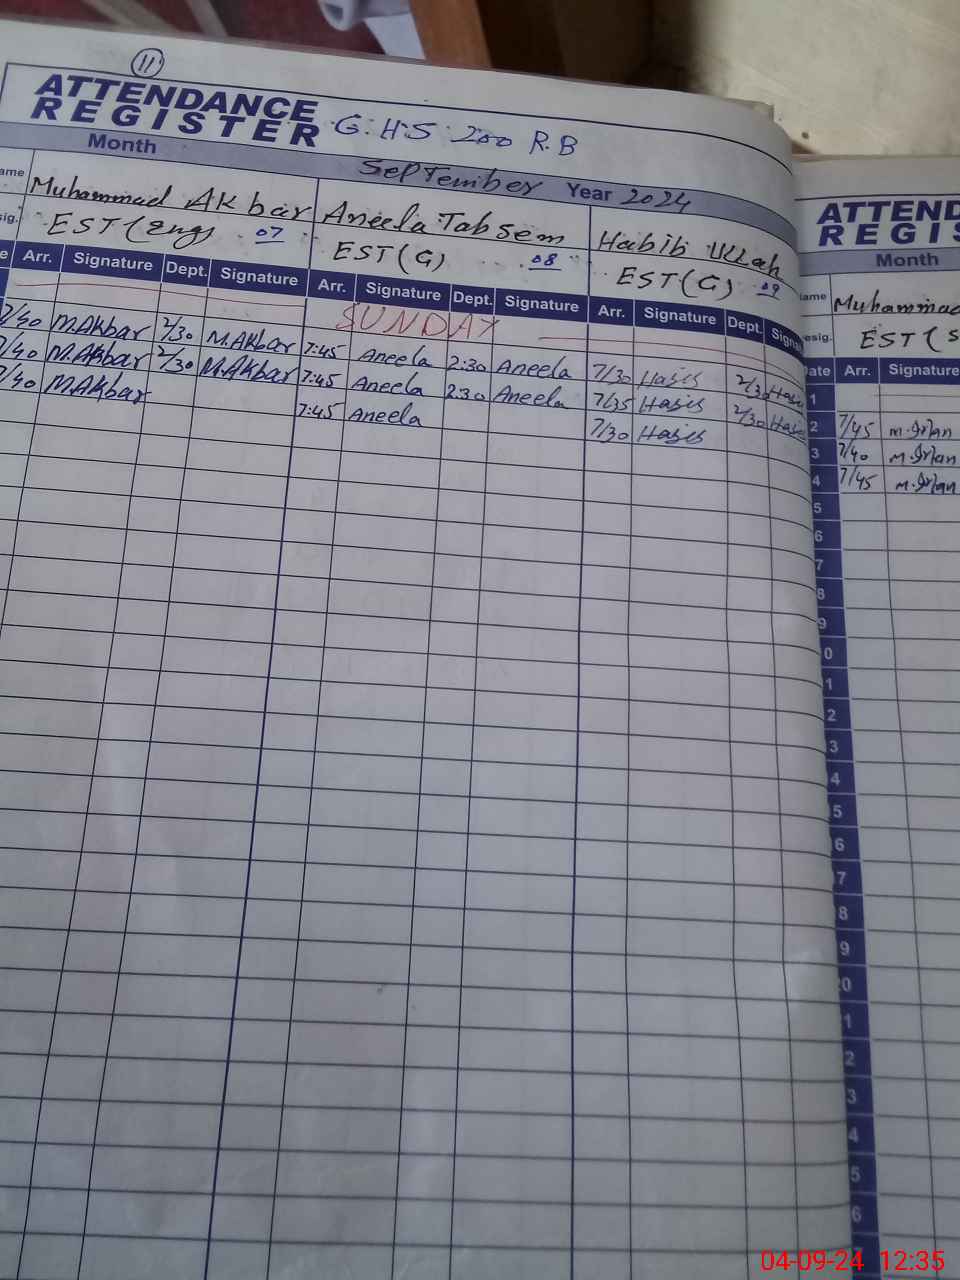 11
ATTENDANCE
REGISTER G.H.S 200 R.B
Month September Year 2024
ame Muhammad Akbar Aneela Tabsem Habib Ullah
sig. EST(Eng) 07 EST(G) 08 EST(G) 09
e Arr. Signature Dept. Signature Arr. Signature Dept. Signature Arr. Signature Dept. Signa
SUNDAY
7/40 M.Akbar 2/30 M.Akbar 7:45 Aneela 2:30 Aneela 7/30 Habib 2/30 Habib
7/40 M.Akbar 2/30 M.Akbar 7:45 Aneela 2:30 Aneela 7/35 Habib 2/30 Habib
7/40 M.Akbar 7:45 Aneela 7/30 Habib
ATTEND
REGIS
Month
ame Muhammad
esig. EST(S
Date Arr. Signature
1
2 7/45 M.Irfan
3 7/40 M.Irfan
4 7/45 M.Irfan
5
6
7
8
9
0
1
2
3
4
5
6
7
8
9
20
1
2
3
4
5
6
04-09-24 12:35